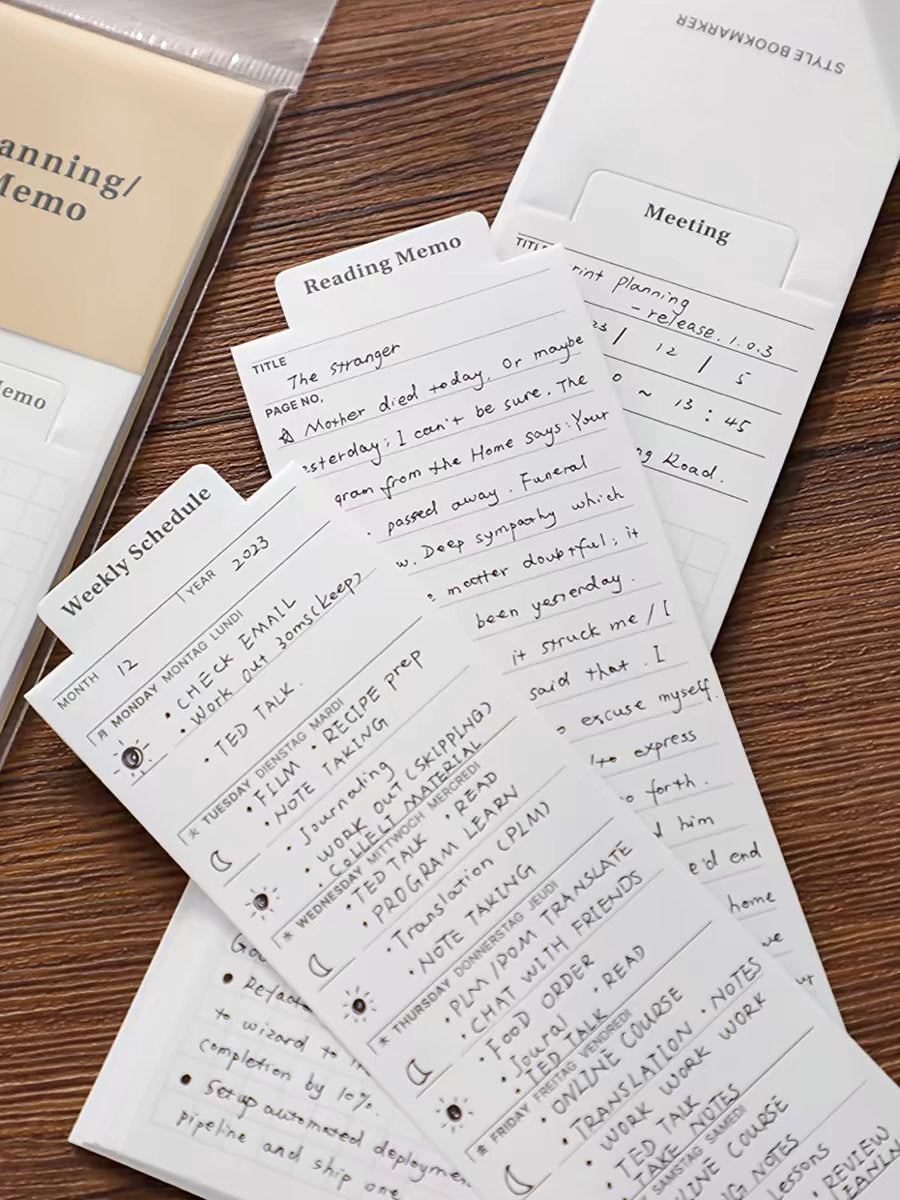 anning/
Memo
emo
STYLE BOOKMARKER
Meeting
TITLE
rint planning
- release. 1.0.3
23 / 12 / 5
0 ~ 13:45
ng Road.
Reading Memo
TITLE
The stranger
PAGE NO.
☆ Mother died today. Or maybe
esterday; I can't be sure. The
gram from the Home says: Your
passed away. Funeral
w. Deep sympathy which
matter doubtful; it
been yesterday.
it struck me / I
said that. I
excuse myself.
to express
o forth.
d him
e'd end
home
we
up
Weekly Schedule
MONTH 12 | YEAR 2023
月 MONDAY MONTAG LUNDI
• CHECK EMAIL
• Work out 30ms(keep)
• TED TALK.
火 TUESDAY DIENSTAG MARDI
• FILM • RECIPE prep
• NOTE TAKING
• Journaling
• WORK OUT (SKIPPING)
• COLLECT MATERIAL
水 WEDNESDAY MITTWOCH MERCREDI
• TED TALK • READ
• PROGRAM LEARN
• Translation (PLM)
• NOTE TAKING
木 THURSDAY DONNERSTAG JEUDI
• PLM/POM TRANSLATE
• CHAT WITH FRIENDS
• FOOD ORDER
• Journal • READ
• TED TALK
金 FRIDAY FREITAG VENDREDI
• ONLINE COURSE
• TRANSLATION • NOTES
• WORK WORK WORK
• TED TALK
TAKE NOTES
SAMSTAG SAMEDI
LINE COURSE
NG NOTES
essons
REVIEW
EANIN
Go
• Refact
to wizard to
completion by 10%.
• Setup automated deployme
pipeline and ship one